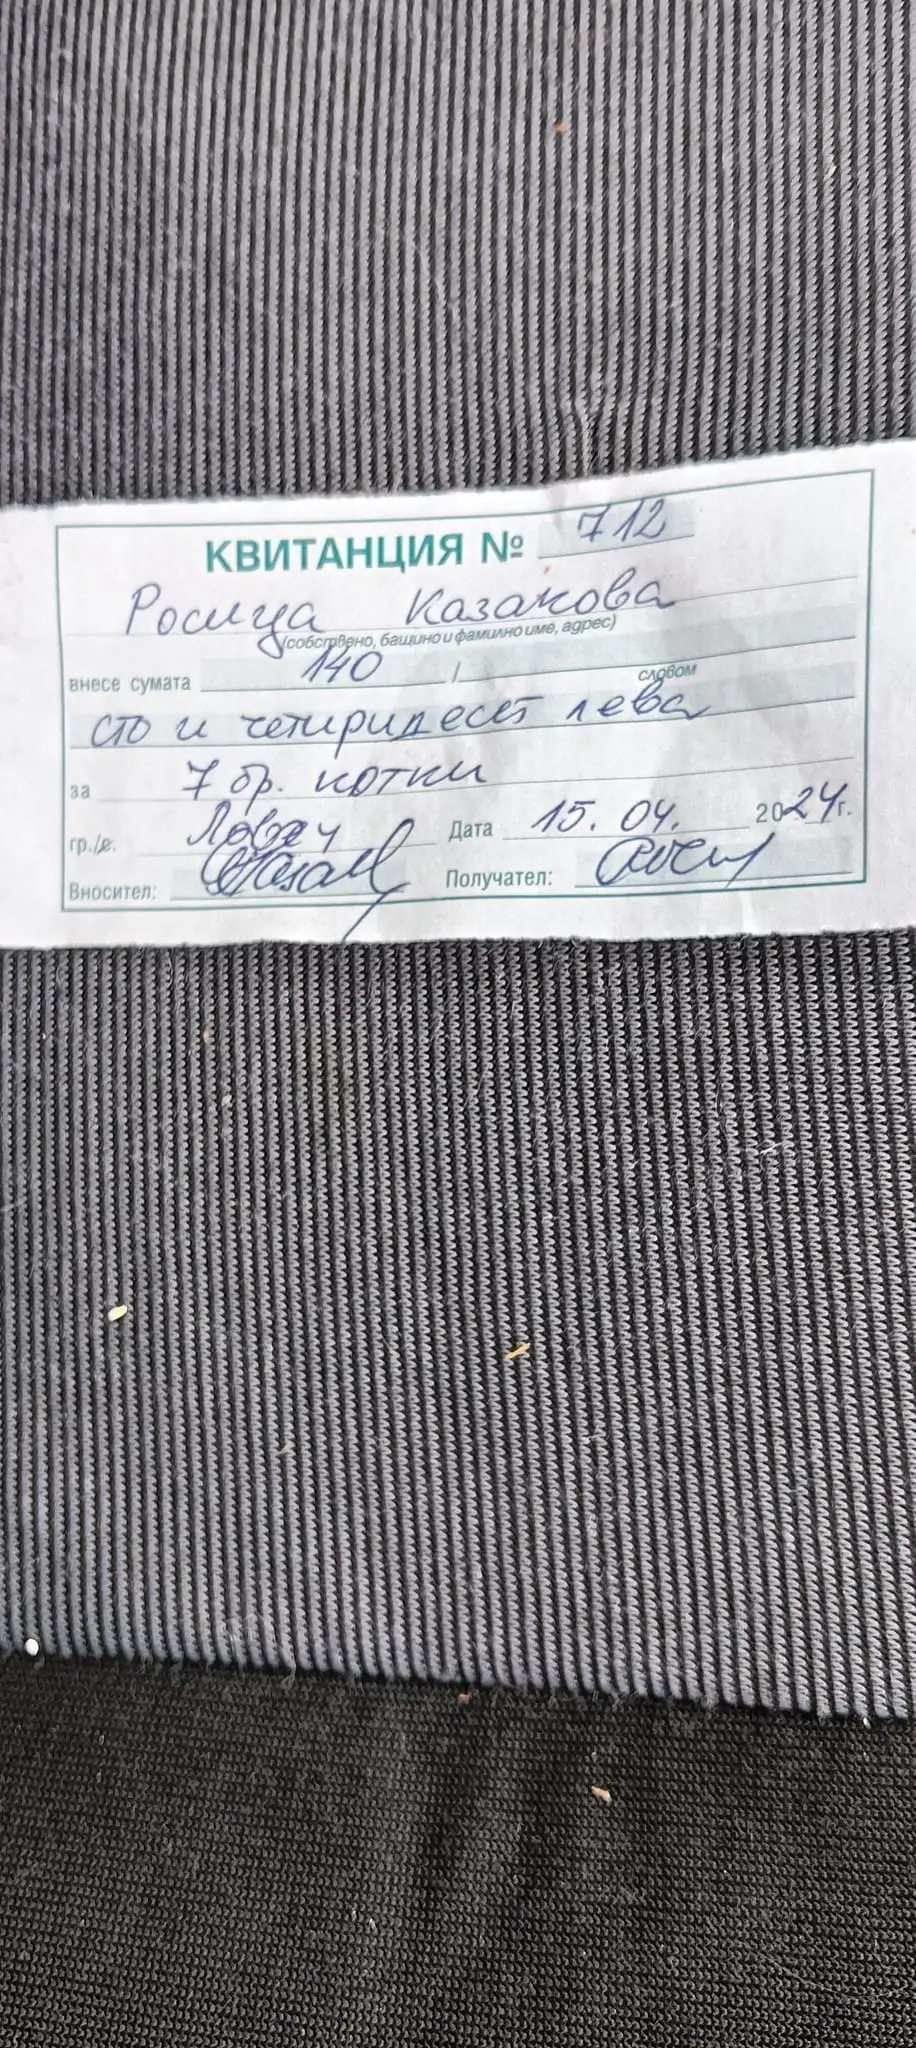 КВИТАНЦИЯ № 712
Росица Казакова
(собствено, бащино и фамилно име, адрес)
внесе сумата 140 / словом
сто и четиридесет лева
за 7 бр. котки
гр./с. Ловеч Дата 15.04. 2024г.
Вносител: Получател: